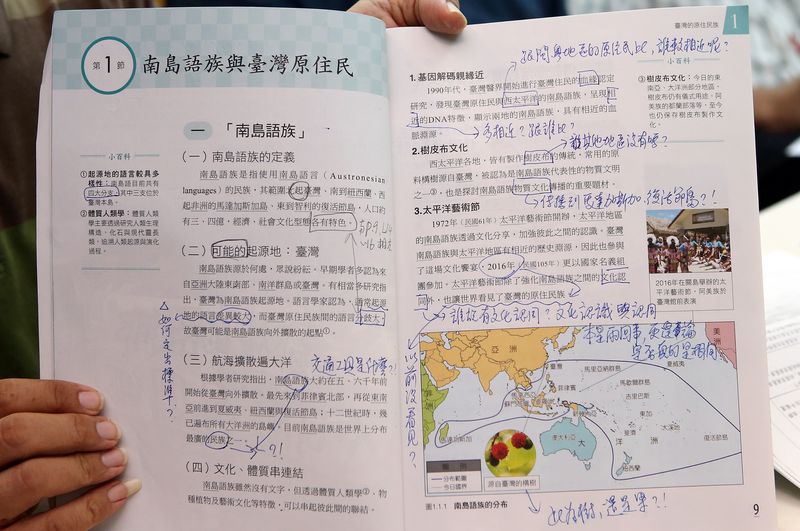 第1節
南島語族與臺灣原住民
一 「南島語族」
小百科
①起源地的語言較具多
樣性:南島語目前共有
四大分支,其中三支位於
臺灣本島。
②體質人類學:體質人類
學主要透過研究人類生理
構造、化石與現代靈長
類,追溯人類起源與演化
過程。
(一)南島語族的定義
南島語族是指使用南島語言(Austronesian
languages)的民族,其範圍北起臺灣、南到紐西蘭、西
起非洲的馬達加斯加島、東到智利的復活節島,人口約
有三、四億,經濟、社會文化型態各有特色。
(二)可能的起源地:臺灣
南島語族源於何處,眾說紛紜,早期學者多認為來
自亞洲大陸東南部、南洋群島或臺灣。有相當多研究指
出,臺灣為南島語族起源地。語言學家認為,通常起源
地的語言差異較大,而臺灣原住民族間的語言分歧大,
故臺灣可能是南島語族向外擴散的起點①。
如何定出標準?
(三)航海擴散遍大洋
交通工具是什麼?!
根據學者研究指出,南島語族大約在五、六千年前
開始從臺灣向外擴散,最先來到菲律賓北部,再從東南
亞前進到夏威夷、紐西蘭與復活節島;十二世紀時,幾
已遍布所有大洋洲的島嶼。目前南島語族是世界上分布
最廣的民族之一。
?!
(四)文化、體質串連結
南島語族雖然沒有文字,但透過體質人類學②、物
種植物及藝術文化等特徵,可以串起彼此間的聯結。
1
臺灣的原住民族
1
跟間與地區的原住民比,誰較相近呢?
1.基因解碼親緣近
1990年代,臺灣醫界開始進行臺灣住民的血緣認定
研究,發現臺灣原住民與西太平洋的南島語族,呈現相
近的DNA特徵,顯示兩地的南島語族,具有相近的血
脈淵源。
多相近?跟誰比?
小百科
③樹皮布文化:今日的東
南亞、大洋洲部分地區,
樹皮布仍有儀式用途。阿
美族的都蘭部落等,至今
也仍保存樹皮布製作文
化。
2.樹皮布文化
難其他地區沒有嗎?
西太平洋各地,皆有製作樹皮布的傳統,常用的原
料構樹源自臺灣,被認為是南島語族代表性的物質文明
之一③,也是探討南島語族物質文化傳播的重要題材。
3.太平洋藝術節
1972年(民國61年)太平洋藝術節開辦,太平洋地區
的南島語族透過文化分享,加強彼此之間的認識。臺灣
南島語族與太平洋地區有相近的歷史淵源,因此也參與
了這場文化饗宴,2016年(民國105年)更以國家名義組
團參加。太平洋藝術節除了強化南島語族之間的文化認
同外,也讓世界看見了臺灣的原住民族。
2016年在關島舉辦的太
平洋藝術節,阿美族於
臺灣館前表演
誰故有文化認同?文化認識與認同
以前沒看見?
亞洲
臺灣
菲律賓
夏威夷
北美洲
馬里亞納群島
馬歇爾群島
吉里巴斯
東加
大溪地
斐濟
復活節島
大洋洲
澳大利亞
紐西蘭
馬達加斯加
非洲
圖例
分布範圍
今日國界
源自臺灣的構樹
圖1.1.1 南島語族的分布
此為樹,還是果?!
9